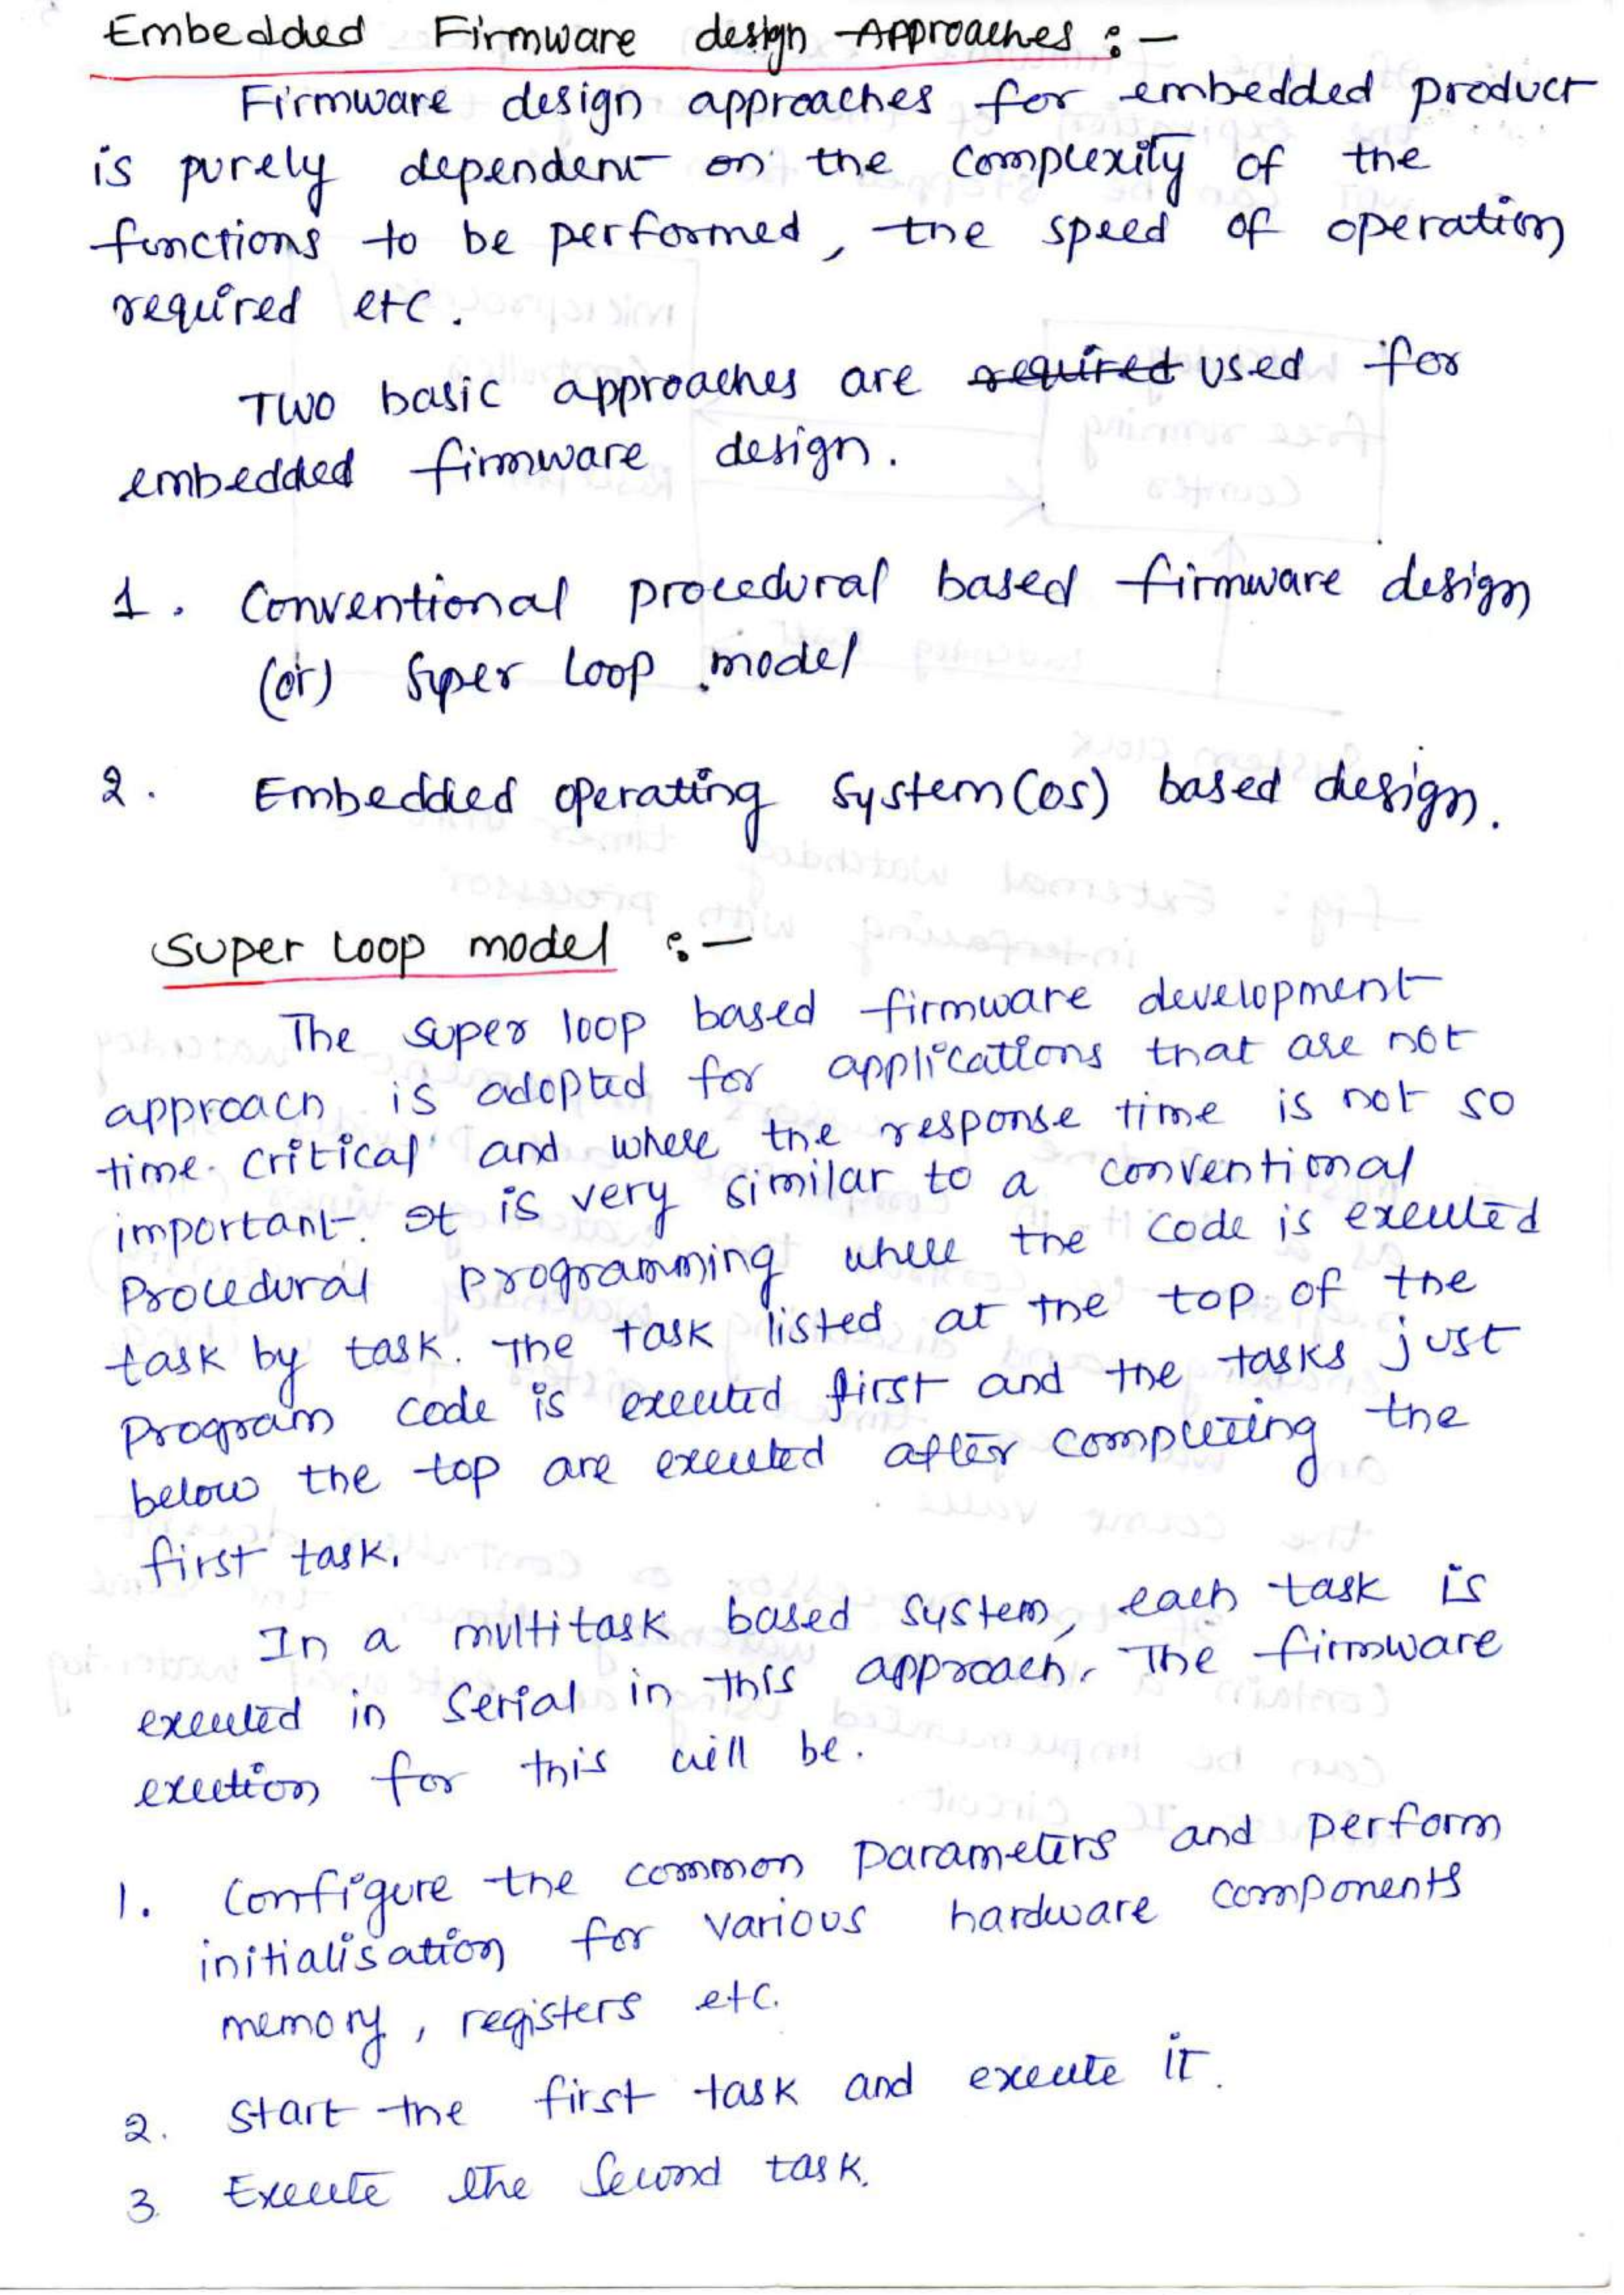 Embedded Firmware design Approaches :-
Firmware design approaches for embedded product
is purely dependent on the complexity of the
functions to be performed, the speed of operation
required etc.
Two basic approaches are required used for
embedded firmware design.
1. Conventional procedural based firmware design
(or) Super Loop model
2. Embedded operating System (OS) based design.
Super Loop model :-
The super loop based firmware development
approach is adopted for applications that are not
time critical and where the response time is not so
important. It is very similar to a conventional
Procedural programming where the code is executed
task by task. The task listed at the top of the
Program code is executed first and the tasks just
below the top are executed after completing the
first task.
In a multitask based system, each task is
executed in serial in this approach. The firmware
exection for this will be.
1. Configure the common Parameters and perform
initialisation for various hardware components
memory, registers etc.
2. Start the first task and execute it.
3. Execute the Second task.